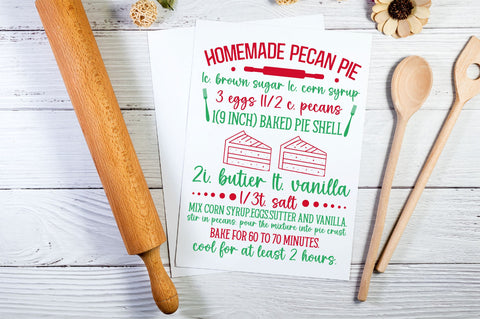 HOMEMADE PECAN PIE
1c. brown sugar 1c. corn syrup
3 eggs 11/2 c. pecans
1(9 INCH) BAKED PIE SHELL
2i. butier 1t. vanilla
1/3t. salt
MIX CORN SYRUP,EGGS,SUTTER AND VANILLA.
stir in pecans. pour the mixture into pie crust
BAKE FOR 60 TO 70 MINUTES.
cool for at least 2 hours.